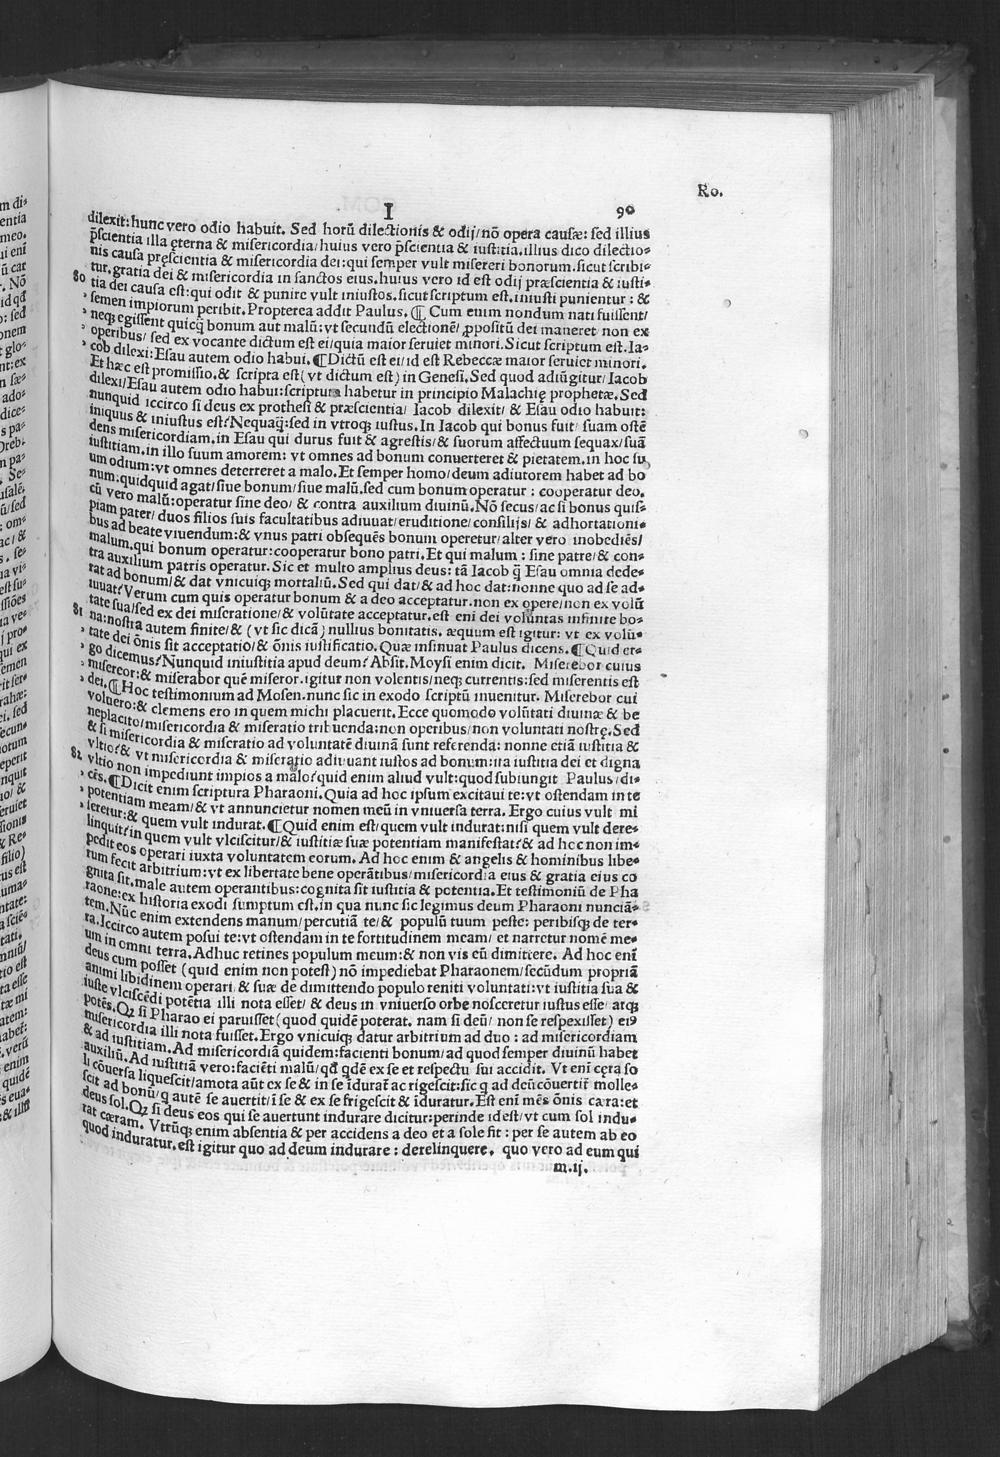 Ro.
I 90
dilexit:hunc vero odio habuit. Sed horū dilectionis & odij/nō opera causæ: sed illius
p̄scientia illa ęterna & misericordia/huius vero p̄scientia & iustitia.illius dico dilectio⸗
nis causa pręscientia & misericordia dei:qui semper vult misereri bonorum.sicut scribi⸗
tur.gratia dei & misericordia in sanctos eius.huius vero id est odij præscientia & iusti⸗
80 tia dei causa est:qui odit & punire vult iniustos.sicut scriptum est.iniusti punientur: &
semen impiorum peribit. Propterea addit Paulus. ¶ Cum enim nondum nati fuissent/
neqꝫ egissent quicq̄ bonum aut malū:vt secundū electionē/ ꝓpositū dei maneret non ex
operibus/ sed ex vocante dictum est ei/quia maior seruiet minori. Sicut scriptum est. Ia⸗
cob dilexi: Esau autem odio habui. ¶ Dictū est ei/id est Rebeccæ maior seruiet minori.
Et hæc est promissio.& scripta est(vt dictum est) in Genesi. Sed quod adiūgitur/ Iacob
dilexi/Esau autem odio habui:scriptura habetur in principio Malachię prophetæ. Sed
nunquid iccirco si deus ex prothesi & præscientia/ Iacob dilexit/ & Esau odio habuit:
iniquus & iniustus est? Nequaq̄:sed in vtroqꝫ iustus. In Iacob qui bonus fuit/ suam ostē
dens misericordiam.in Esau qui durus fuit & agrestis/& suorum affectuum sequax/suā
iustitiam.in illo suum amorem: vt omnes ad bonum conuerteret & pietatem.in hoc su
um odium:vt omnes deterreret a malo. Et semper homo/deum adiutorem habet ad bo
num:quidquid agat/siue bonum/siue malū.sed cum bonum operatur: cooperatur deo.
cū vero malū:operatur sine deo/ & contra auxilium diuinū. Nō secus/ac si bonus quis⸗
piam pater/ duos filios suis facultatibus adiuuat/eruditione/consilijs/ & adhortationi⸗
bus ad beate viuendum:& vnus patri obsequēs bonum operetur/alter vero inobediēs/
malum.qui bonum operatur:cooperatur bono patri. Et qui malum: sine patre/& con⸗
tra auxilium patris operatur. Sic et multo amplius deus: tā Iacob q̄ Esau omnia dede⸗
rat ad bonum/& dat vnicuiqꝫ mortaliū. Sed qui dat/& ad hoc dat:nonne quo ad se ad⸗
iuuat? Verum cum quis operatur bonum & a deo acceptatur.non ex opere/non ex volū
tate sua/sed ex dei miseratione/& volūtate acceptatur.est eni dei volūntas infinite bo⸗
81 na:nostra autem finite/& (vt sic dicā) nullius bonitatis. æquum est igitur: vt ex volū⸗
tate dei ōnis sit acceptatio/& ōnis iustificatio. Quæ insinuat Paulus dicens. ¶ Quid er⸗
go dicemus? Nunquid iniustitia apud deum? Absit. Moysi enim dicit. Miserebor cuius
misereor:& miserabor quē miseror.igitur non volentis/neqꝫ currentis:sed miserentis est
dei. ¶ Hoc testimonium ad Mosen.nunc sic in exodo scriptū inuenitur. Miserebor cui
voluero:& clemens ero in quem michi placuerit. Ecce quomodo volūtati diuinæ & be
neplacito/misericordia & miseratio tribuenda:non operibus/non voluntati nostrę. Sed
& si misericordia & miseratio ad voluntatē diuinā sunt referenda: nonne etiā iustitia &
vltio? & vt misericordia & miseratio adiuuant iustos ad bonum:ita iustitia dei et digna
82 vltio non impediunt impios a malo? quid enim aliud vult:quod subiungit Paulus/di⸗
cēs. ¶ Dicit enim scriptura Pharaoni. Quia ad hoc ipsum excitaui te:vt ostendam in te
potentiam meam/& vt annuncietur nomen meū in vniuersa terra. Ergo cuius vult mi
seretur:& quem vult indurat. ¶ Quid enim est/quem vult indurat:nisi quem vult dere⸗
linquit? in quem vult vlciscitur/& iustitiæ suæ potentiam manifestat? & ad hoc non im⸗
pedit eos operari iuxta voluntatem eorum. Ad hoc enim & angelis & hominibus libe⸗
rum fecit arbitrium:vt ex libertate bene operātibus/misericordia eius & gratia eius co
gnita sit.male autem operantibus:cognita sit iustitia & potentia. Et testimoniū de Pha
raone:ex historia exodi sumptum est.in qua nunc sic legimus deum Pharaoni nunciā⸗
tem. Nūc enim extendens manum/percutiā te/& populū tuum peste: peribisqꝫ de ter⸗
ra. Iccirco autem posui te:vt ostendam in te fortitudinem meam/ et narretur nomē me⸗
um in omni terra. Adhuc retines populum meum:& non vis eū dimittere. Ad hoc enī
deus cum posset (quid enim non potest) nō impediebat Pharaonem/secūdum propriā
animi libidinem operari/& suæ de dimittendo populo reniti voluntati:vt iustitia sua &
iuste vlciscēdi potētia illi nota esset/ & deus in vniuerso orbe nosceretur iustus esse/ atqꝫ
potēs. Qꝫ si Pharao ei paruisset(quod quidē poterat. nam si deū/ non se respexisset) eiꝰ
misericordia illi nota fuisset. Ergo vnicuiqꝫ datur arbitrium ad duo: ad misericordiam
& ad iustitiam. Ad misericordiā quidem:facienti bonum/ad quod semper diuinū habet
auxiliū. Ad iustitiā vero:faciēti malū/qđ qđē ex se et respectu sui accidit. Vt enī cęra so
li cōuersa liquescit/amota aūt ex se & in se īdurat ac rigescit:sic q ad deū cōuertit molle⸗
scit ad bonū/q autē se auertit/ī se & ex se frigescit & īduratur. Est enī mēs ōnis cæra:et
deus sol. Qꝫ si deus eos qui se auertunt indurare dicitur:perinde id est/vt cum sol indu⸗
rat cæram. Vtrūqꝫ enim absentia & per accidens a deo et a sole fit: per se autem ab eo
quod induratur.est igitur quo ad deum indurare: derelinquere. quo vero ad eum qui
m.ij.